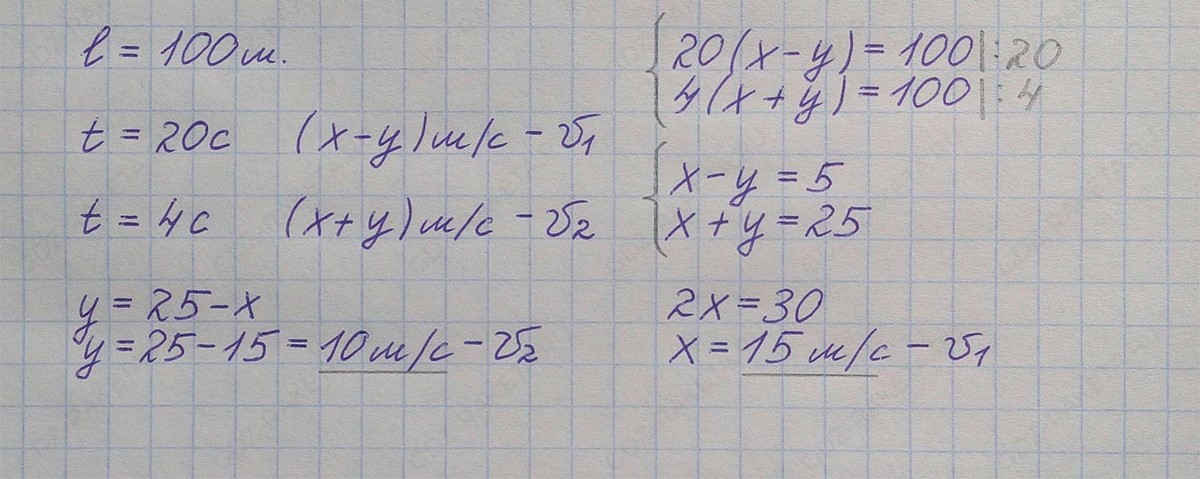 l = 100 м.
t = 20с (x-y) м/с - v1
t = 4с (x+y) м/с - v2
y = 25-x
y = 25-15 = 10 м/с - v2
20(x-y) = 100 |:20
4(x+y) = 100 |:4
x-y = 5
x+y = 25
2x = 30
x = 15 м/с - v1